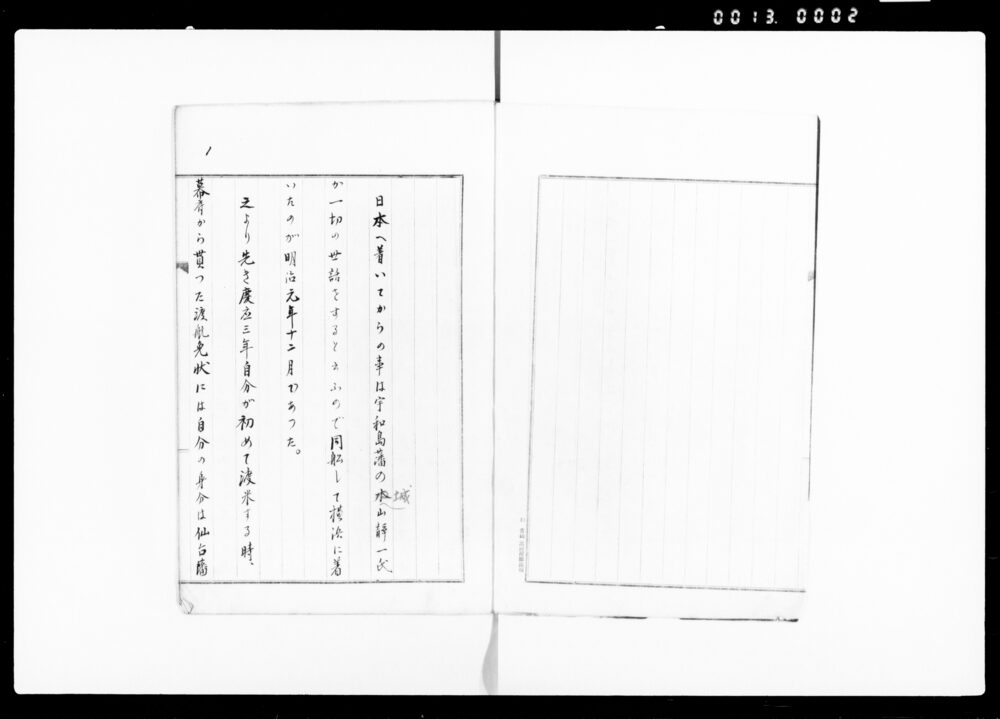 0013 0002
1
日本へ着いてからの事は宇和島藩の水山靜一氏
城
か一切の世話をすると云ふので同船して横浜に着
いたのが明治元年十二月であつた。
之より先き慶応三年自分が初めて渡米する時、
幕府から貰つた渡航免状には自分の身分は仙台藩